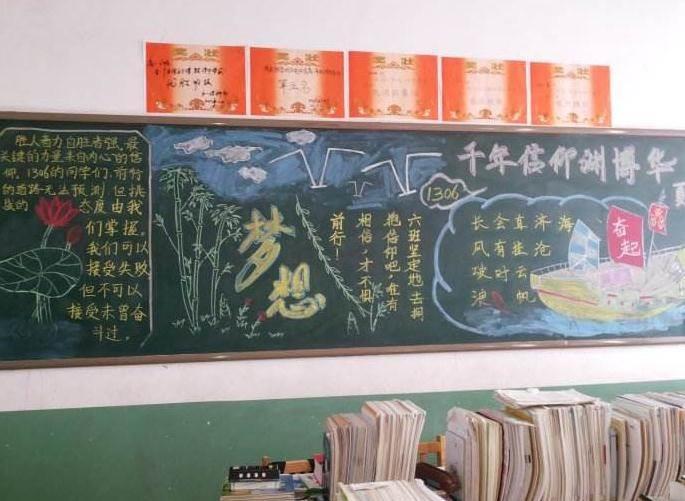 胜人者力 自胜者强,最
关键的力量来自内心的信
仰。1306的同学们,前行
的道路无法预测 但挑
战的 态度由我
们掌握。
我们可以
接受失败
但不可以
接受未曾奋
斗过。
梦想
六班坚定地去拥
抱信仰吧,唯有
相信,才不惧
前行!
千年信仰洲博华
夏
1306
长风破浪
会有时
直挂云帆
济沧
海
奋起